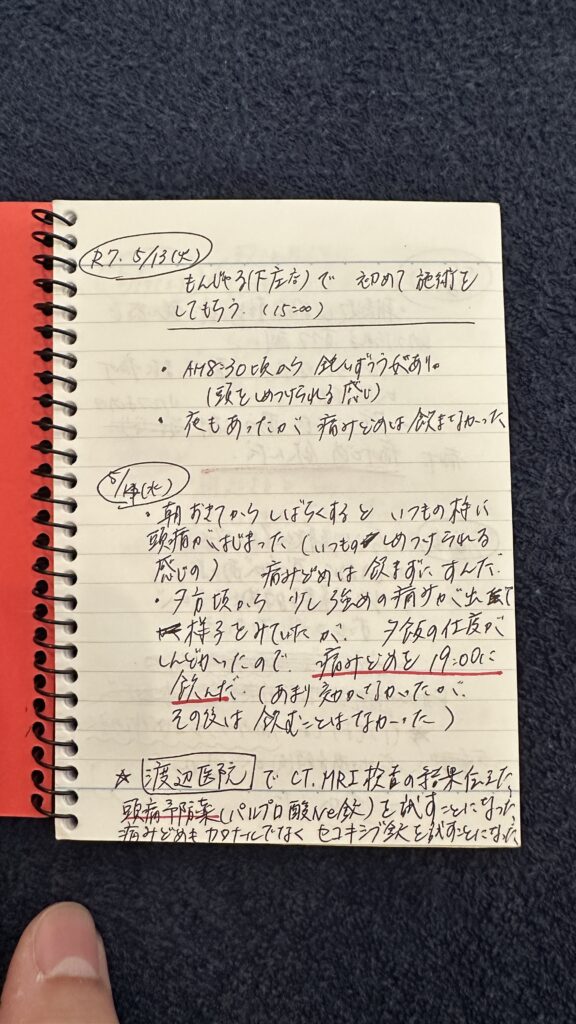 R7. 5/13(火)
もんじゃろ(下庄店)で 初めて施術を
してもらう. (15:00)
・AM8:30頃から 鈍いずつうがあり。
(頭をしめつけられる感じ)
・夜もあったが 病みどめは飲まなかった
5/14(水)
・朝おきてからしばらくすると いつもの様に
頭痛がはじまった (いつものしめつけられる
感じの) 痛みどめは飲まずにすんだ.
・夕方頃から 少し強めの痛みが出て
様子をみていたが、夕飯の仕度が
しんどかったので、痛みどめを19:00に
飲んだ. (あまり効かなかったが、
その後は飲むことはなかった)
☆ 渡辺医院 で CT.MRI検査の結果伝えた.
頭痛予防薬(バルプロ酸Na錠)を試すことになった
痛みどめも カロナールでなく セコキシブ錠を試すことになった.